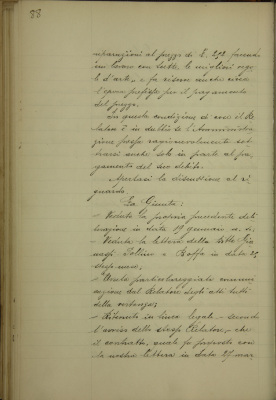 88
riparazioni al prezzo di £. 292 facendo
un lavoro con tutte le migliori rego-
le d'arte, e fa
l'epoca prefissa per il pagamento
del prezzo.
In questa condizione di cose il Re-
latore è in dubbio se l'Amministra-
zione possa ragionevolmente sot-
trarsi anche solo in parte al pa-
gamento del suo debito.
Apertasi la discussione al ri-
guardo
La Giunta:
- Veduta la propria precedente deli-
berazione in data 19 gennaio u. s.;
- Veduta la lettera della Ditta
e Boffa in data 25
stesso mese;
- Udita particolareggiata comuni-
cazione dal Relatore degli atti tutti
della vertenza;
- Ritenuto in linea legale - secondo
l'avviso dello stesso Relatore - che
il contratto, quale fu proposto con
la nostra lettera in data 27 mar-